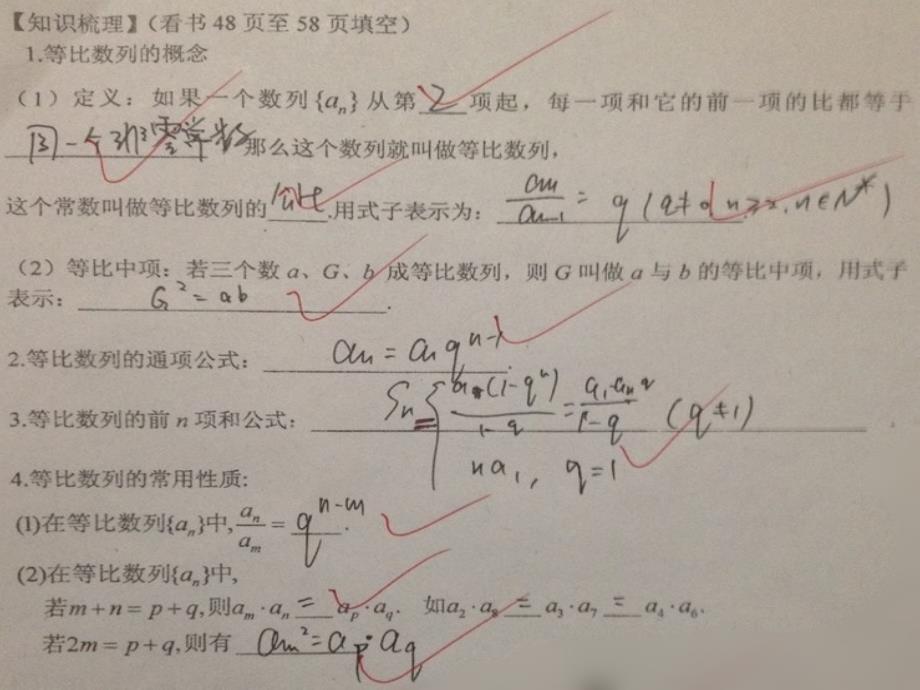 【知识梳理】（看书 48 页至 58 页填空）
1.等比数列的概念
（1）定义：如果一个数列{aₙ}从第 2 项起，每一项和它的前一项的比都等于
同一个非零常数 那么这个数列就叫做等比数列，
这个常数叫做等比数列的 公比 .用式子表示为： aₙ/aₙ₋₁ = q (q≠0 n≥2, n∈N*)
（2）等比中项：若三个数 a、G、b 成等比数列，则 G 叫做 a 与 b 的等比中项，用式子
表示： G²=ab .
2.等比数列的通项公式： aₙ = a₁qⁿ⁻¹ .
3.等比数列的前 n 项和公式： Sₙ = { a₁(1-qⁿ)/(1-q) = (a₁-aₙq)/(1-q) (q≠1)
na₁, q=1
4.等比数列的常用性质:
(1)在等比数列{aₙ}中, aₙ/aₘ = qⁿ⁻ᵐ .
(2)在等比数列{aₙ}中,
若m+n = p+q,则aₘ·aₙ = aₚ·a_q. 如a₂·a₈ = a₃·a₇ = a₄·a₆.
若2m = p+q,则有 aₘ²=aₚ·a_q